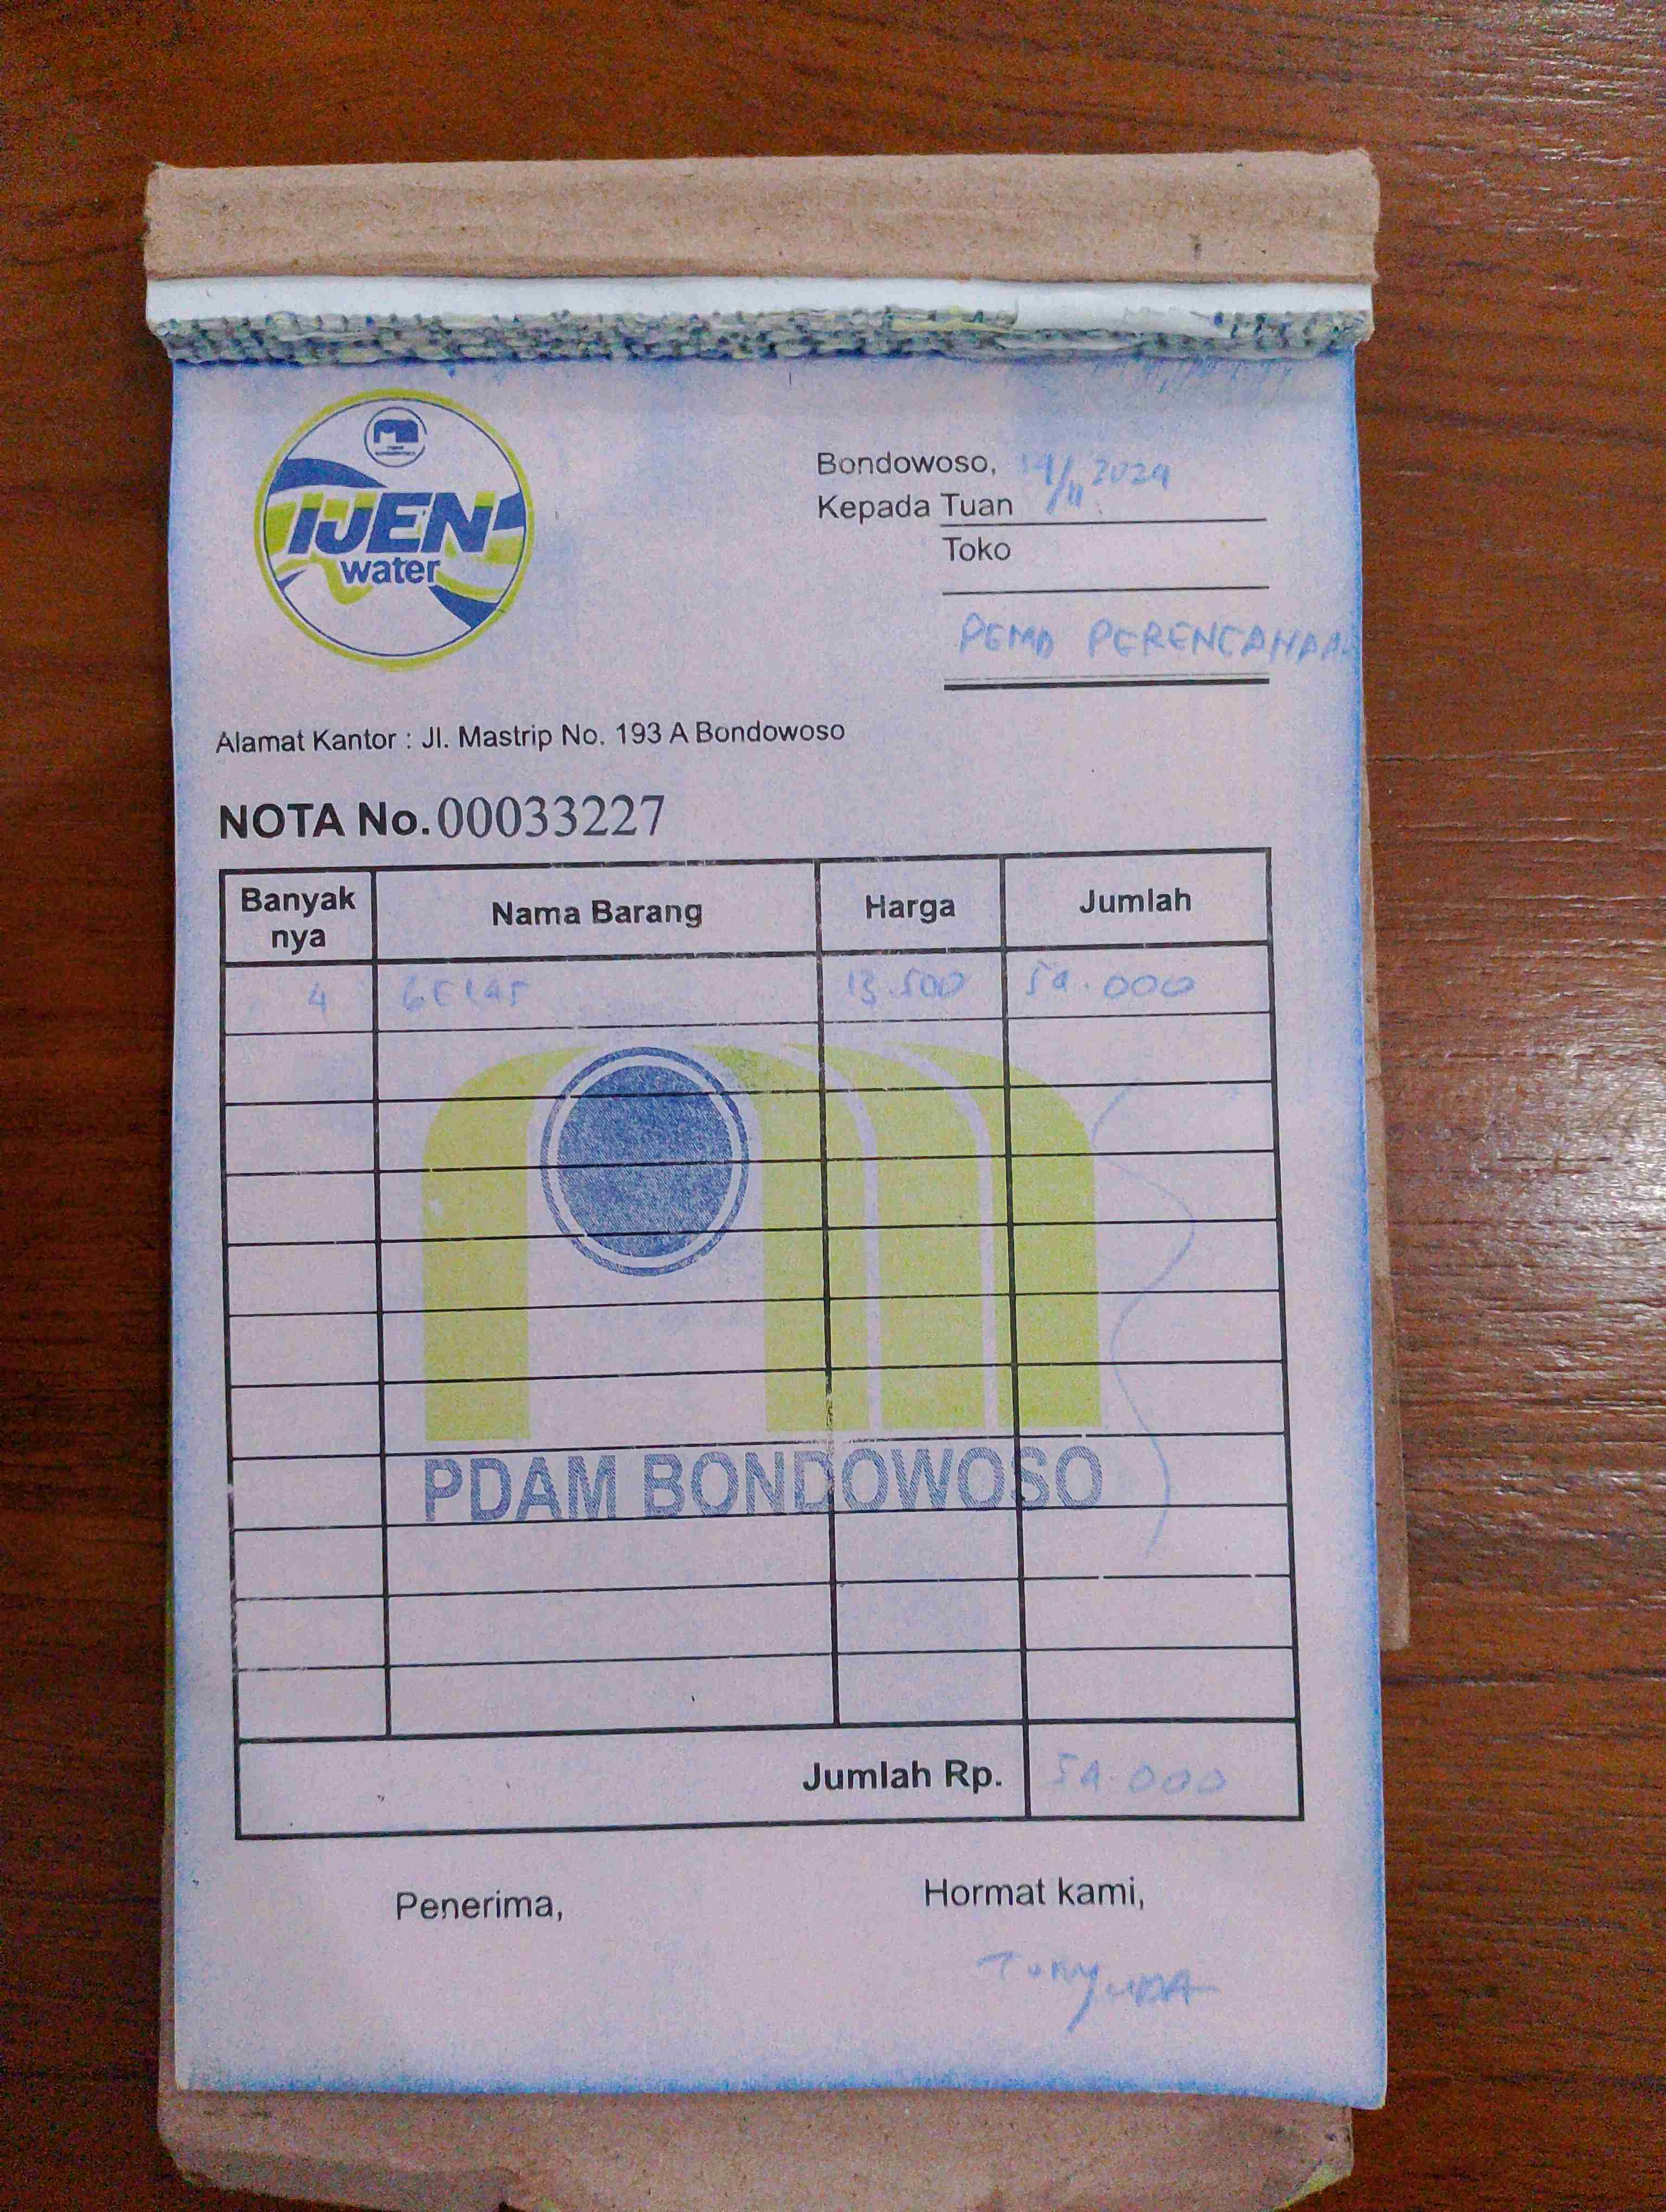 IJEN
water
Bondowoso, 14/11 2024
Kepada Tuan
Toko
PEMB PERENCANAAN
Alamat Kantor : Jl. Mastrip No. 193 A Bondowoso
NOTA No. 00033227
Banyak nya Nama Barang Harga Jumlah
4 GELAS 13.500 54.000
PDAM BONDOWOSO
Jumlah Rp. 54.000
Penerima, Hormat kami,